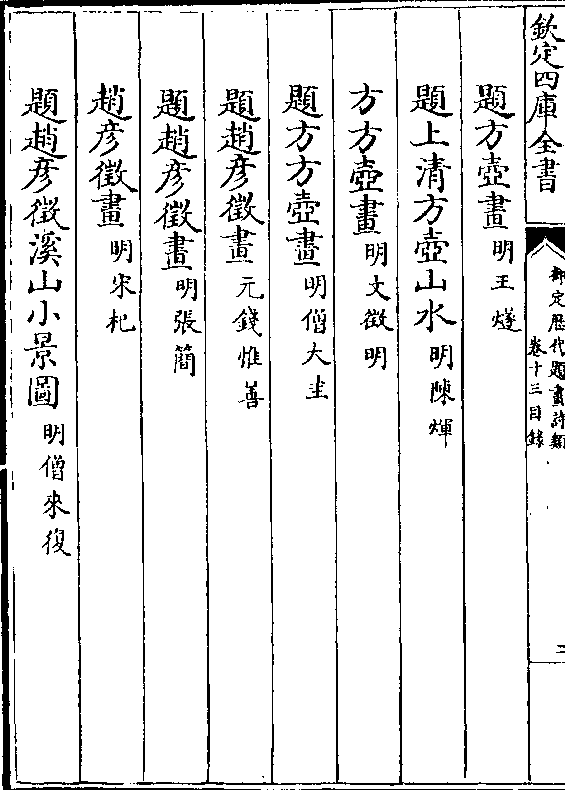 欽定四庫全書
御定歷代題畫詩類
卷十三目錄
二
題方壺畫 明王燧
題上清方壺山水 明陳煇
方方壺畫 明文徵明
題方方壺畫 明僧大圭
題趙彥徵畫 元錢惟善
題趙彥徵畫 明張簡
趙彥徵畫 明宋杞
題趙彥徵溪山小景圖 明僧來復